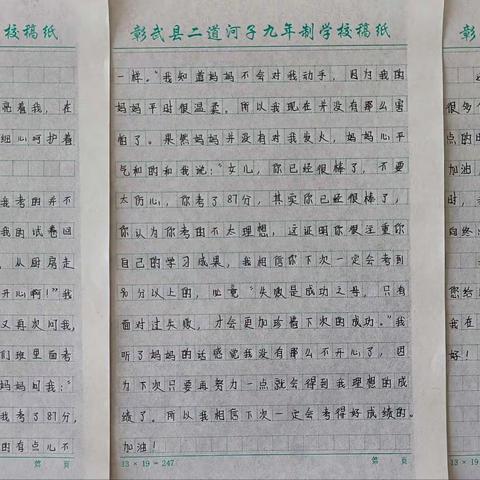 校稿纸
亮着我，在
细心呵护着
我考的并不
我的试卷回
，从厨房走
开心啊！”我
又再次问我，
们班里面考
妈妈问我：“
我考了87分，
的有点儿不
第 页
彰武县二道河子九年制学校稿纸
一样。“我知道妈妈不会对我动手，因为我的
妈妈平时很温柔。所以我现在并没有那么害
怕了。果然妈妈并没有对我发火，妈妈心平
气和的和我说：“女儿，你已经很棒了，不要
太伤心，你考了87分，其实你已经很棒了，
你认为你考的不太理想，这证明你很注重你
自己的学习成果，我相信你下次一定会考到
90分以上的，毕竟“失败是成功之母，只有
面对过失败，才会更加珍惜下次的成功。”我
听了妈妈的话感觉我没有那么不开心了，因
为下次只要再努力一点就会得到我理想的成
绩了。所以我相信下次一定会考得好成绩的。
加油！
13 × 19 = 247
第 页
彰
很多
点的
加油，
时，
始终
您给
我在
好！
13 × 19